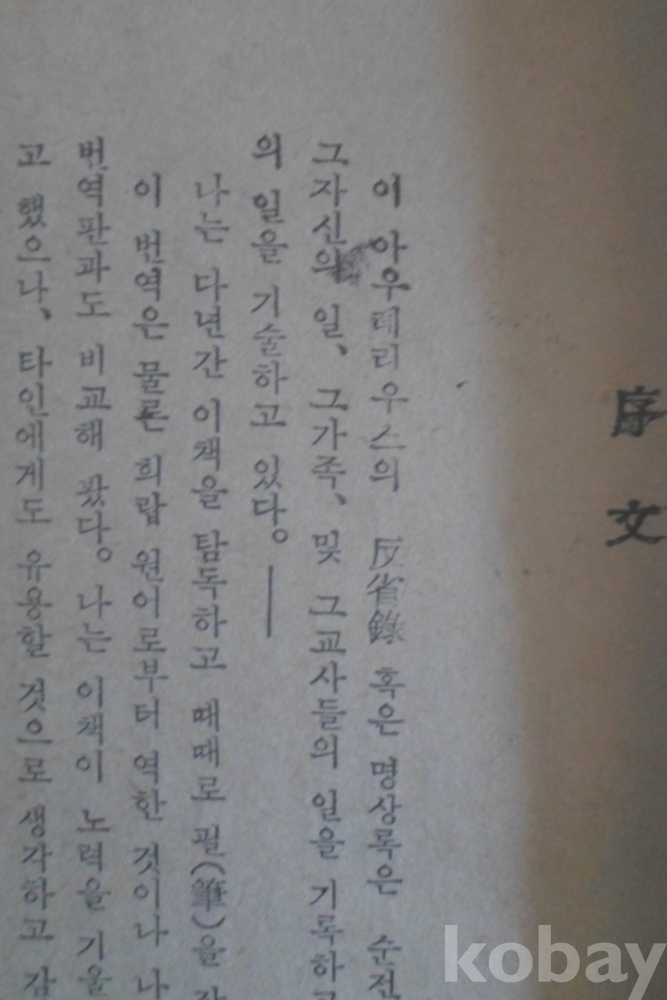 序文
이 아우레리우스의 反省錄 혹은 명상록은 순전
그자신의 일、그가족、및 그교사들의 일을 기록하고
의 일을 기술하고 있다。——
나는 다년간 이책을 탐독하고 때때로 필(筆)을
이 번역은 물론 희랍 원어로부터 역한 것이나 나
번역판과도 비교해 봤다。나는 이책이 노력을 기울
고 했으나、타인에게도 유용할 것으로 생각하고 감
kobay